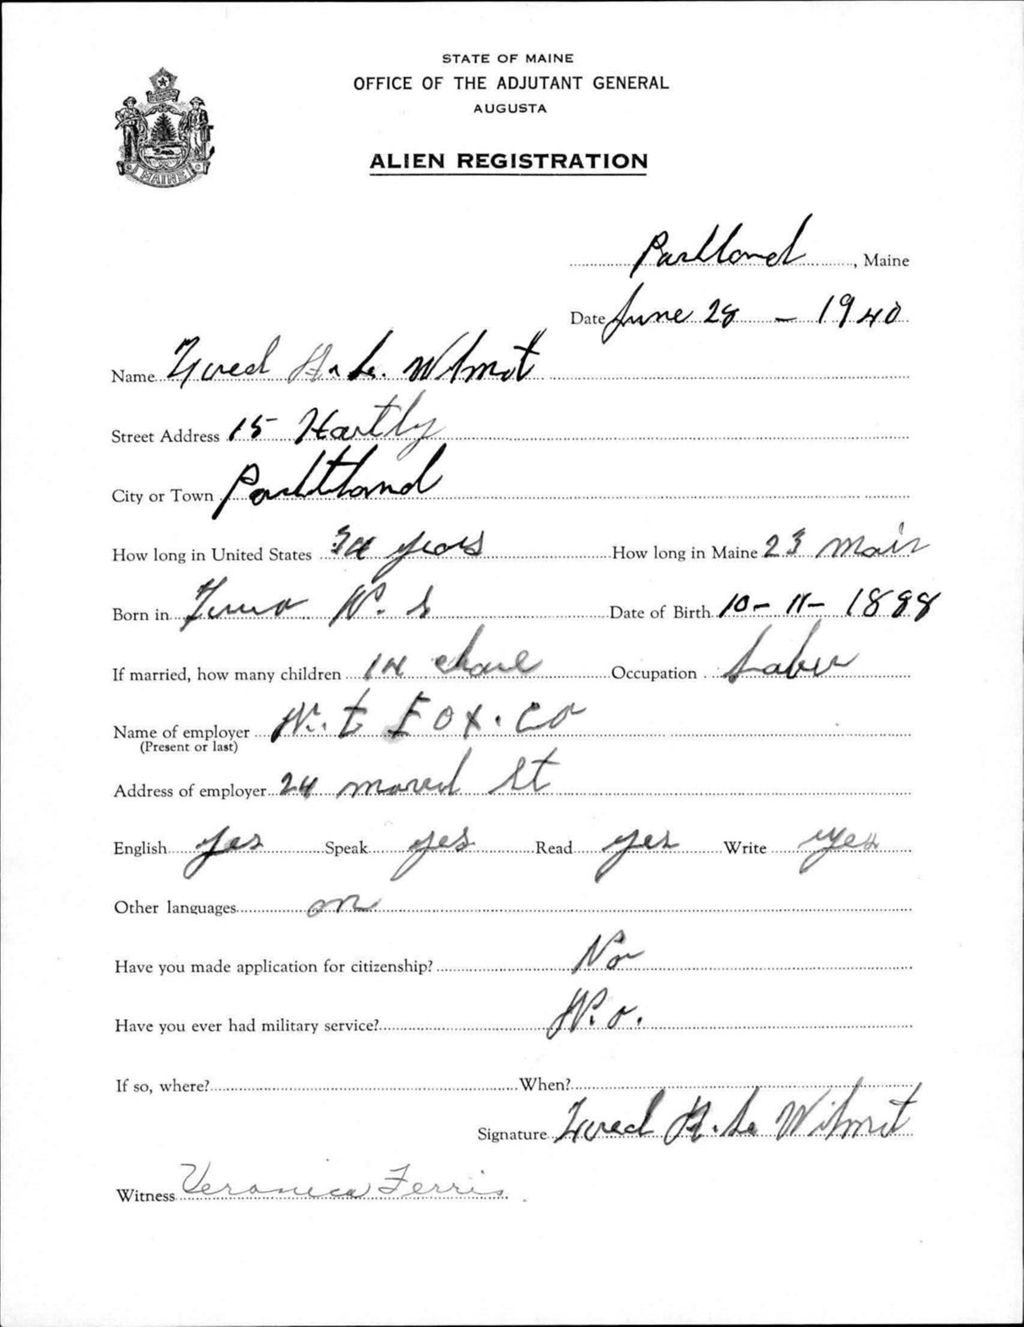 STATE OF MAINE
OFFICE OF THE ADJUTANT GENERAL
AUGUSTA
MAINE
ALIEN REGISTRATION
Portland, Maine
Date June 28 - 1940
Name Wilmot
Street Address 15 Hartly
City or Town Portland
How long in United States years How long in Maine 23
Born in N. S Date of Birth 10-11-1888
If married, how many children 14 Occupation Laber
Name of employer Fox. Co
(Present or last)
Address of employer 24 St
English yes Speak yes Read yes Write yes
Other languages
Have you made application for citizenship? No
Have you ever had military service? No.
If so, where? When?
Signature Wilmot
Witness Veronica Ferris